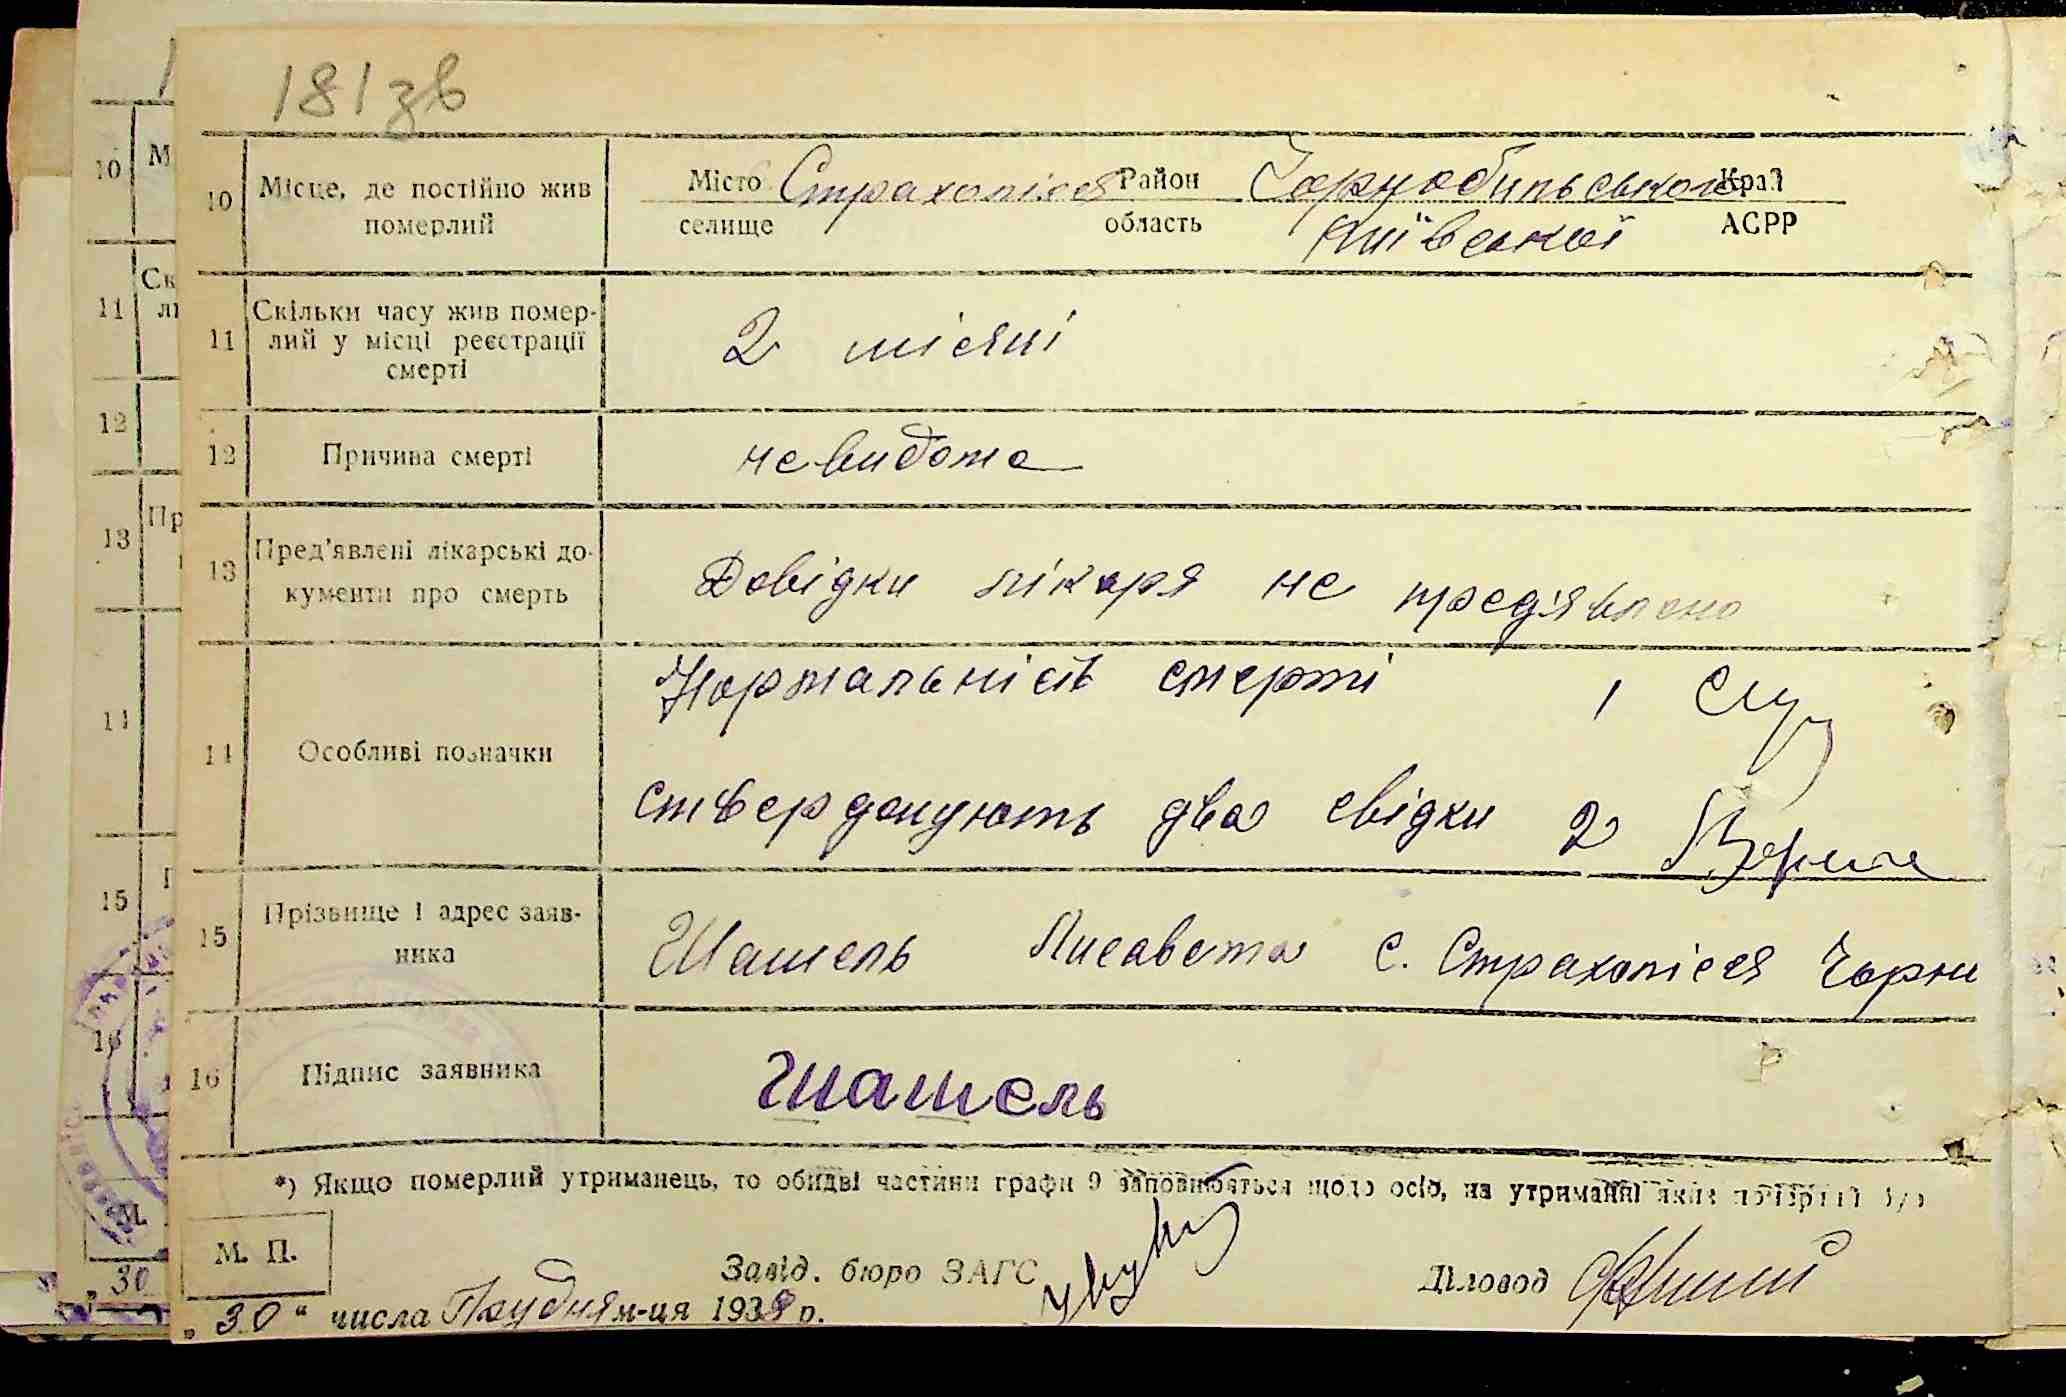 181 зв
10 Місце, де постійно жив померлий Місто селище Страхолісся Район область Чорнобильського Край АСРР
Київської
11 Скільки часу жив помер-
лий у місці реєстрації
смерті
2 місяці
12 Причина смерті невидома
13 Пред'явлені лікарські до-
кументи про смерть
Довідки лікаря не предявлено
14 Особливі позначки
Нормальність смерті 1
стверджують два свідки 2
15 Прізвище і адрес заяв-
ника
Шашель Лисавета с. Страхолісся Чорни
16 Підпис заявника Шашель
*) Якщо померлий утриманець, то обидві частини графи 9 заповнюються щодо осіб, на утриманні яких
М. П.
Завід. бюро ЗАГС Діловод
„30“ числа Грудня м-ця 1939 р.
10 М
11 Ск
ли
12
13 Пр
14
15
16
М.
„30